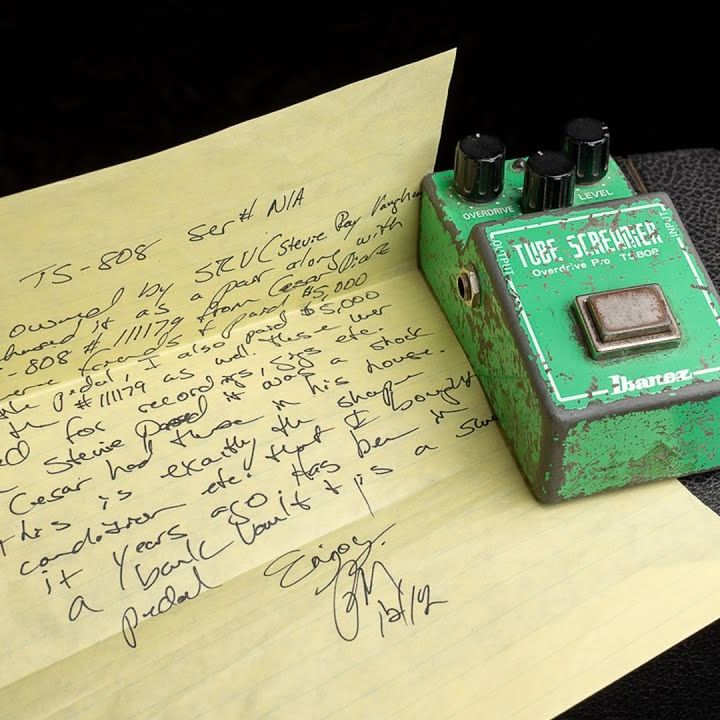 TS-808 Ser# N/A
owned by SRV (Stevie Ray Vaughan
it as a pair along with
-808 # 111179 from Cesar Diaz
friends & paid $5,000
pedal, I also paid $5,000
# 111179 as well. These wer
for recordings, gigs etc.
Stevie it was a shock
Cesar had these in his house.
This is exactly the shape
condition etc. that I bought
it years ago. Has been in
a bank vault & is a
pedal
Enjoy
12/12
OVERDRIVE
LEVEL
OUTPUT
INPUT
TUBE SCREAMER
Overdrive Pro TS808
Ibanez